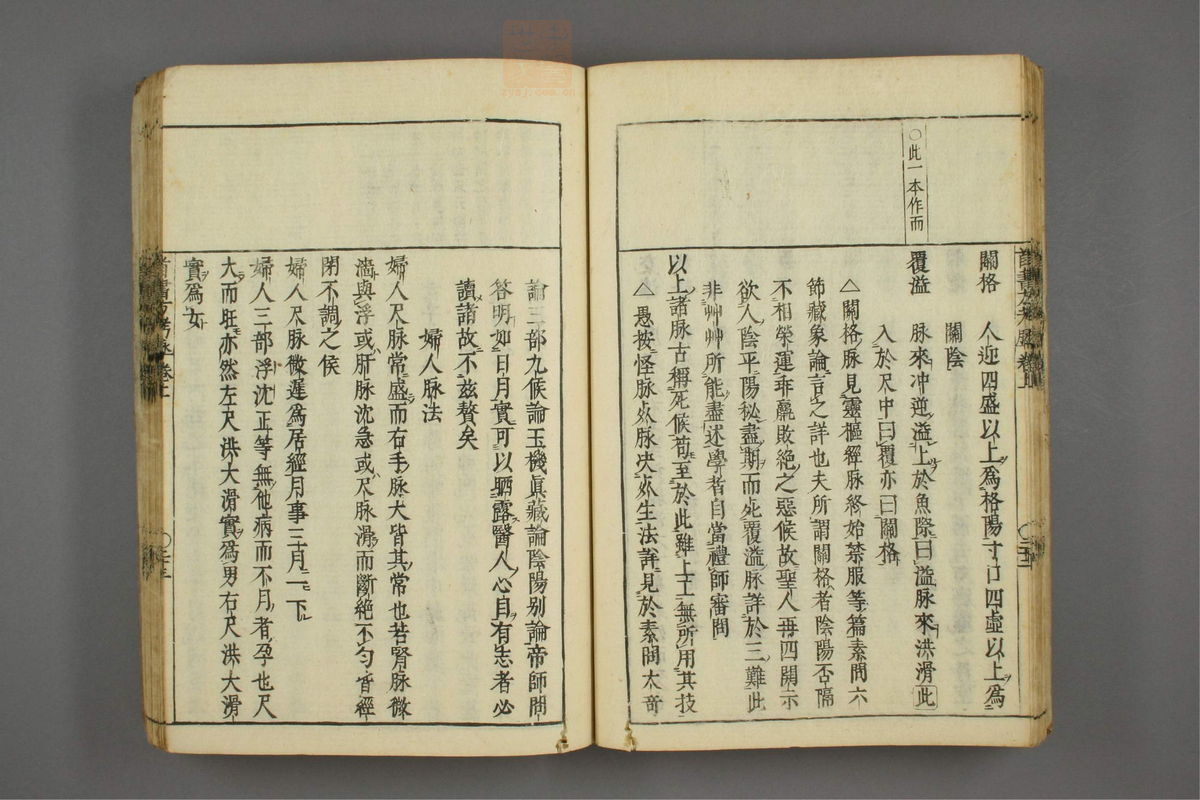 ○此一本作而
關格　人迎四盛以上爲格陽寸口四虛以上爲
關陰
覆溢　脉來冲逆溢上於魚際曰溢脉來洪滑此
入於尺中曰覆亦曰關格
△關格脉見靈樞經脉終始禁服等篇素問六
節藏象論言之詳也夫所謂關格者陰陽否隔
不相榮運乖羸敗絶之惡候故聖人再四開示
欲人陰平陽秘盡期而死覆溢脉詳於三難此
非艸艸所能盡述學者自當禮師審問
以上諸脉古稱死候苟至於此雖上工無所用其技
△愚按怪脉死脉决死生法詳見於素問大奇
論三部九候論玉機眞藏論陰陽别論帝師問
答明如日月實可以晒露醫人心自有志者必
讀諸故不兹贅矣
婦人脉法
婦人尺脉常盛而右手脉大皆其常也若腎脉微
濇與浮或肝脉沈急或尺脉滑而斷絶不匀皆經
閉不調之候
婦人尺脉微遲爲居經月事三月一下
婦人三部浮沈正等無他病而不月者孕也尺
大而旺亦然左尺洪大滑實爲男右尺洪大滑
實爲女